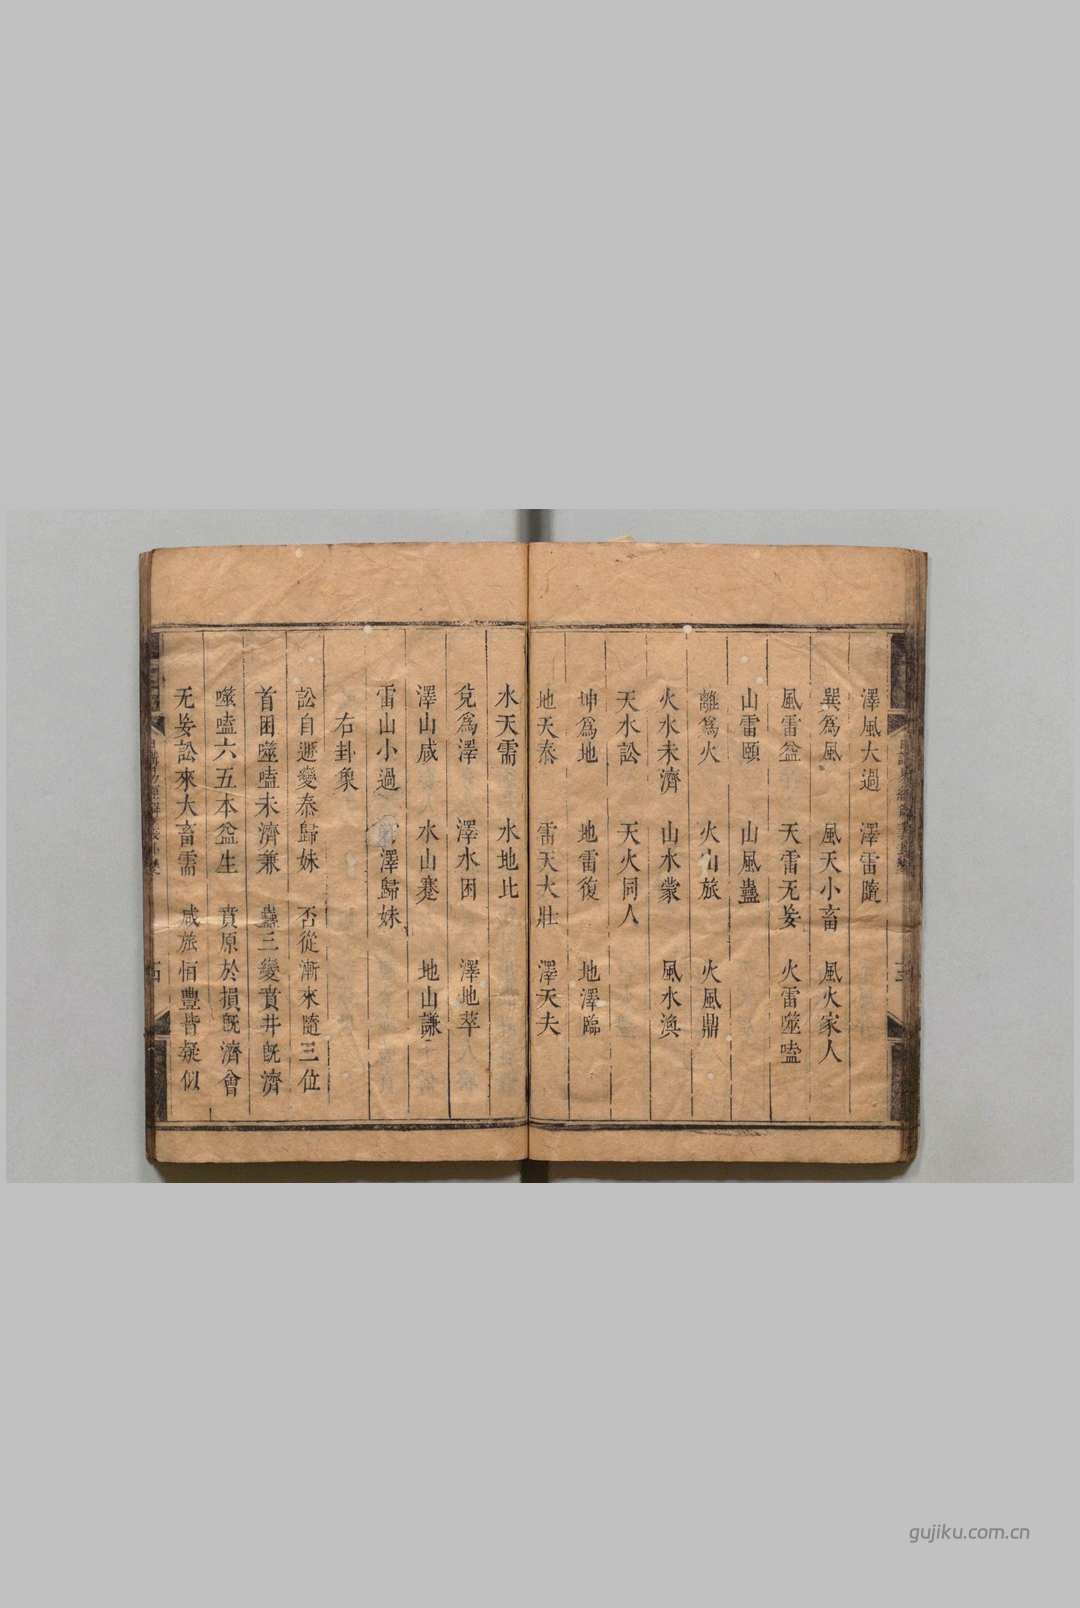 澤風大過 澤雷隨
巽爲風 風天小畜 風火家人
風雷益 天雷无妄 火雷噬嗑
山雷頤 山風蠱
離爲火 火山旅 火風鼎
火水未濟 山水蒙 風水渙
天水訟 天火同人
坤爲地 地雷復 地澤臨
地天泰 雷天大壯 澤天夬
水天需 水地比
兌爲澤 澤水困 澤地萃
澤山咸 水山蹇 地山謙
雷山小過 澤歸妹
右卦象
訟自遯變泰歸妹 否從漸來隨三位
首困噬嗑未濟兼 蠱三變賁井旣濟
噬嗑六五本益生 賁原於損旣濟會
无妄訟來大畜需 咸旅恒豐皆疑似
gujiku.com.cn